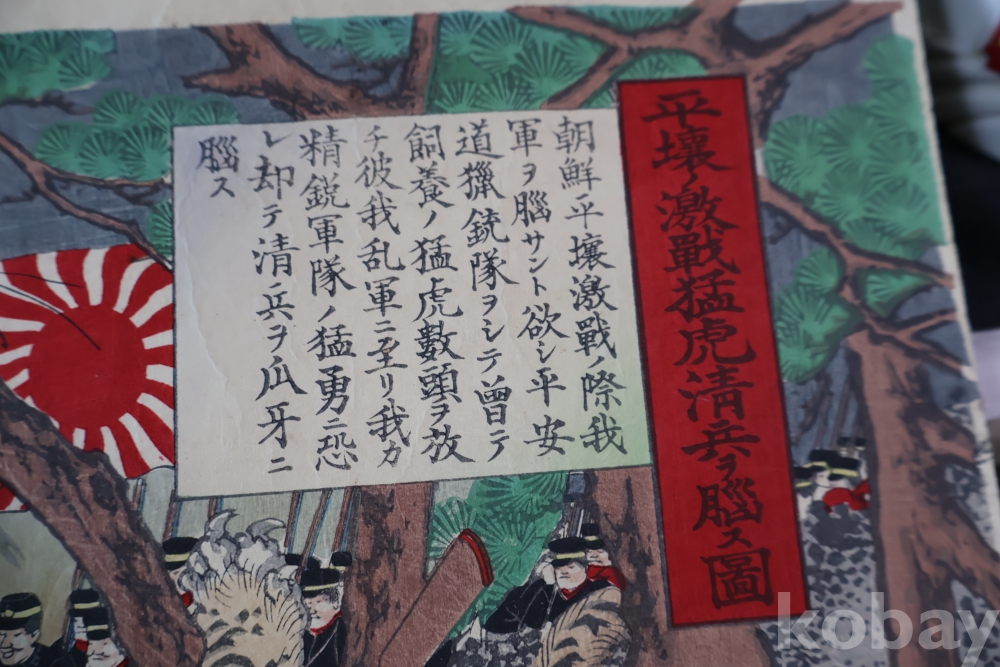 平壤ノ激戰猛虎清兵ヲ腦ス圖
朝鮮平壤激戰ノ際我
軍ヲ腦サント欲シ平安
道獵銃隊ヲシテ曽テ
飼養ノ猛虎數頭ヲ放
チ彼我乱軍ニ至リ我カ
精鋭軍隊ノ猛勇ニ恐
レ却テ清兵ヲ瓜牙ニ
腦ス
kobay